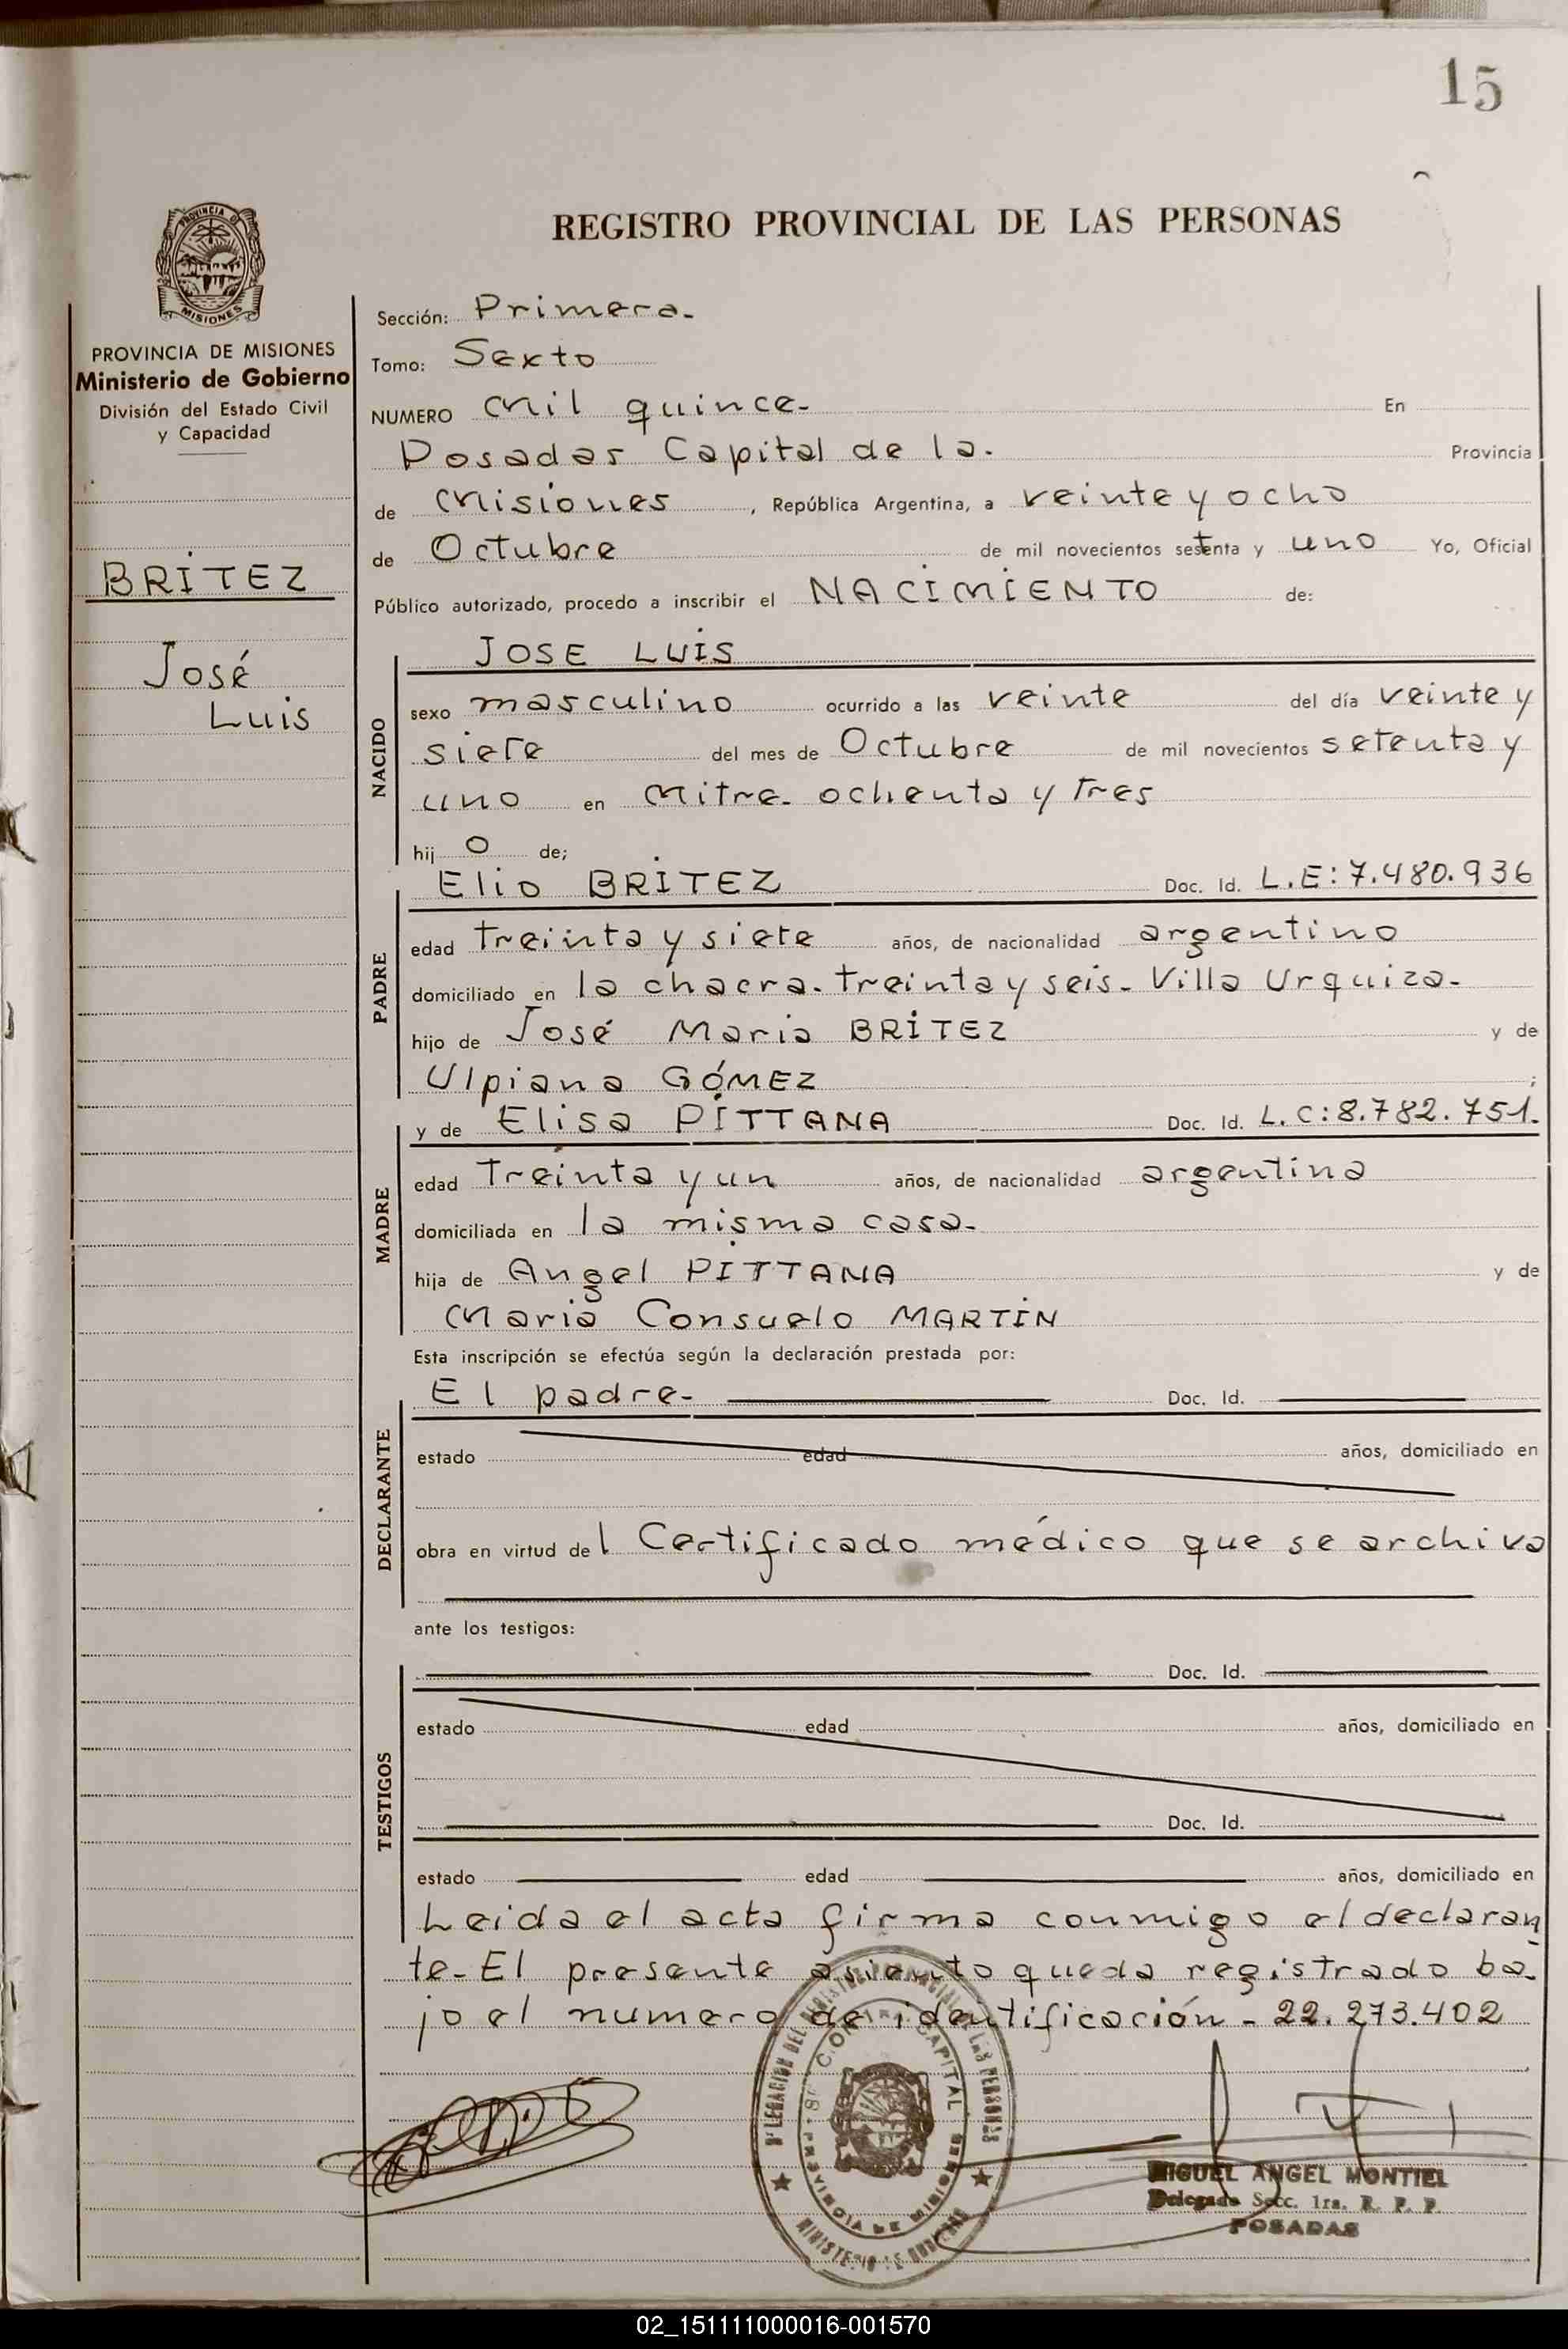 15
REGISTRO PROVINCIAL DE LAS PERSONAS
PROVINCIA DE
MISIONES
PROVINCIA DE MISIONES
Ministerio de Gobierno
División del Estado Civil
y Capacidad
BRITEZ
José
Luis
Sección: Primera.
Tomo: Sexto
NUMERO Mil quince. En
Posadas Capital de la. Provincia
de Misiones, República Argentina, a veinte y ocho
de Octubre de mil novecientos setenta y uno Yo, Oficial
Público autorizado, procedo a inscribir el NACIMIENTO de:
NACIDO
JOSE LUIS
sexo masculino ocurrido a las veinte del día veinte y
siete del mes de Octubre de mil novecientos setenta y
uno en Mitre. ochenta y tres
hij o de;
PADRE
Elio BRITEZ Doc. Id. L.E: 7.480.936
edad treinta y siete años, de nacionalidad argentino
domiciliado en la chacra. treinta y seis. Villa Urquiza.
hijo de José Maria BRITEZ y de
Ulpiana GÓMEZ ;
MADRE
y de Elisa PITTANA Doc. Id. L.C: 8.782.751.
edad Treinta y un años, de nacionalidad argentina
domiciliada en la misma casa.
hija de Angel PITTANA y de
Maria Consuelo MARTIN
Esta inscripción se efectúa según la declaración prestada por:
DECLARANTE
El padre. Doc. Id.
estado edad años, domiciliado en
obra en virtud del Certificado médico que se archiva
ante los testigos:
TESTIGOS
Doc. Id.
estado edad años, domiciliado en
Doc. Id.
estado edad años, domiciliado en
Leida el acta firma conmigo el declaran
te. El presente asiento queda registrado ba.
jo el numero de identificación - 22.273.402
CAPITAL
PROVINCIA DE MISIONES
MIGUEL ANGEL MONTIEL
Delegado Secc. 1ra. R. P. P.
POSADAS
02_151111000016-001570